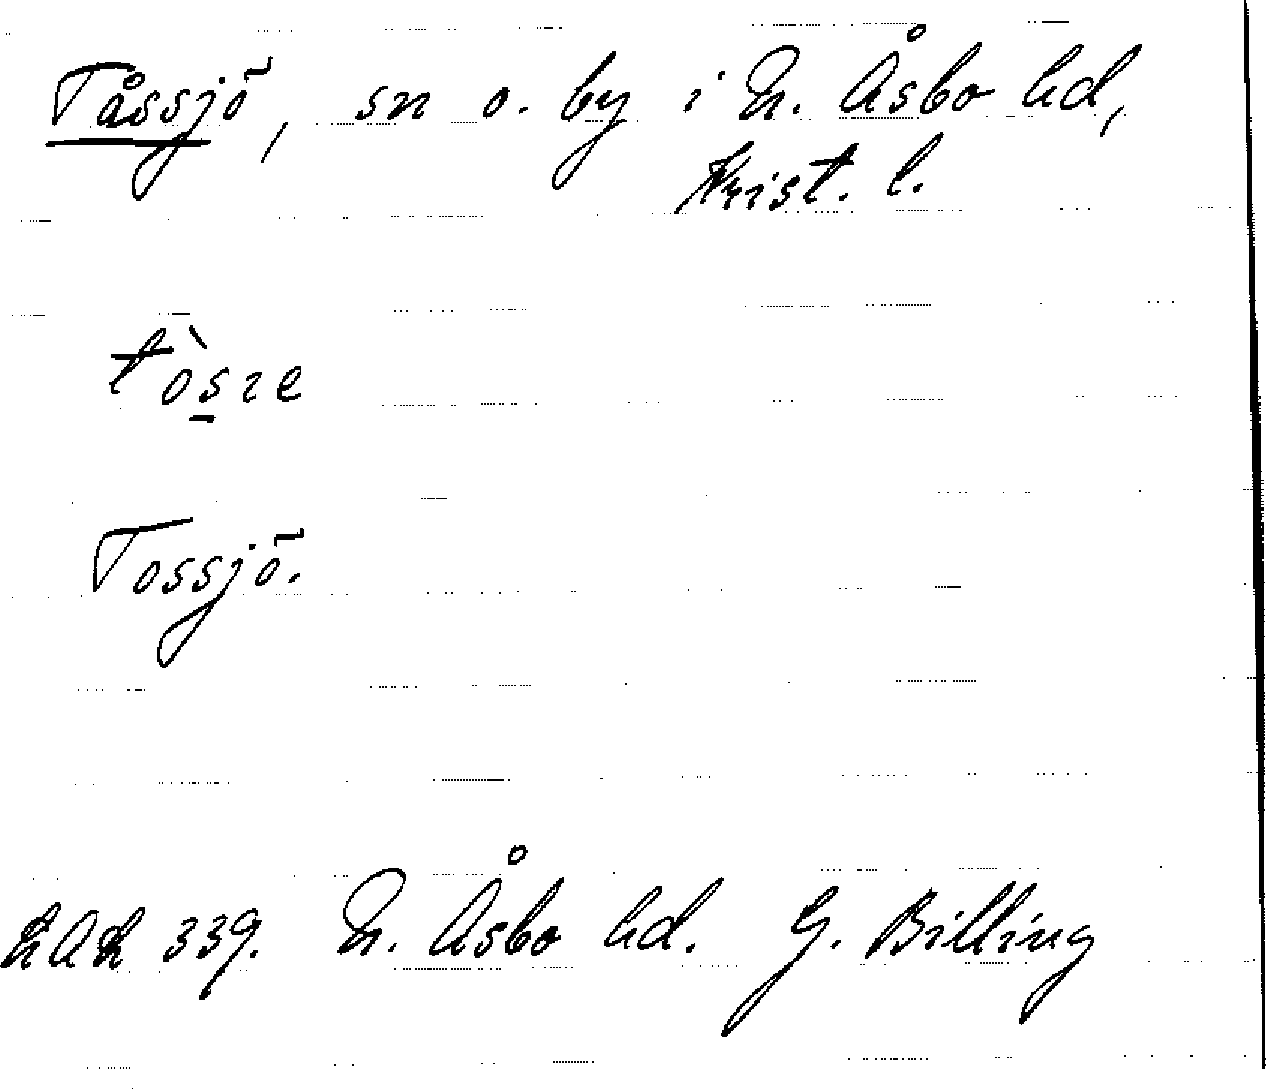 Tåssjö, sn o. by i N. Åsbo hd,
Krist. l.
tòs̲ıe
Tossjö.
LAL 339. N. Åsbo hd. G. Billing